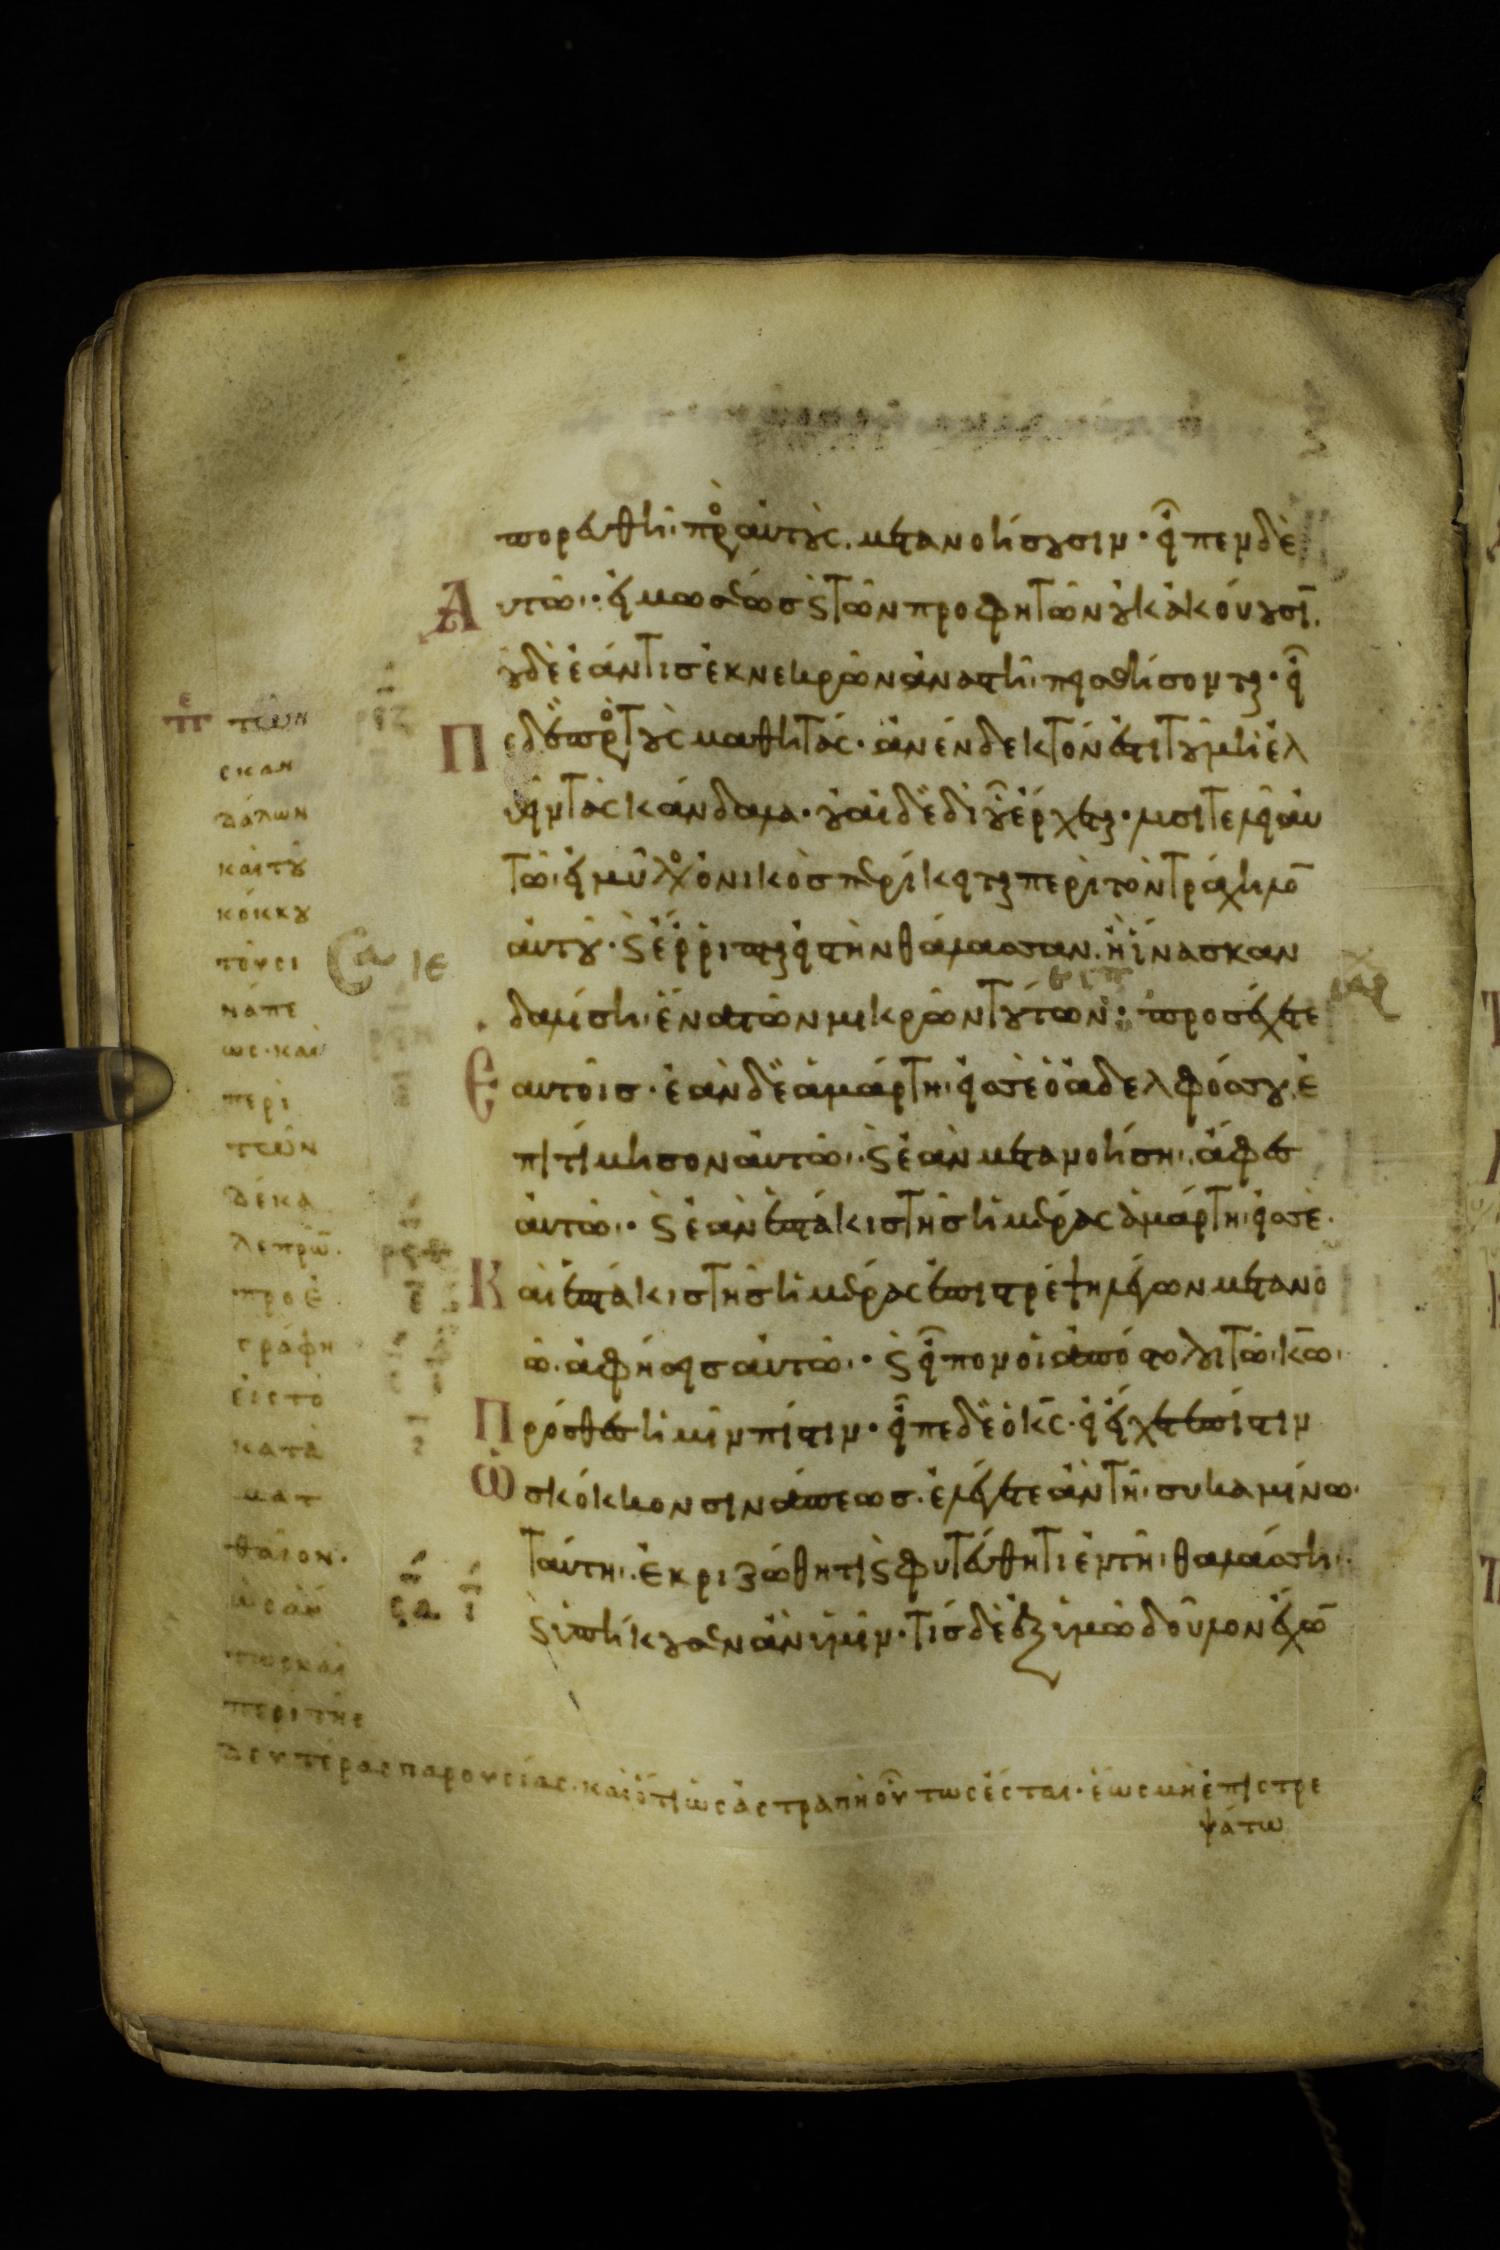 πορευθῆ πρὸς αὐτοὺς, μετανοήσουσιν· εἶπεν δὲ
Αυτῶ· εἰ μωσέως ϛ τῶν προφητῶν οὐκ ἀκούουσῖ.
οὐδὲ ἐάν τισ ἐκ νεκρῶν ἀναστῆ πεισθήσονται· εἶ
Πε δὲ πρὸς τοὺς μαθητάς· ἀνένδεκτόν ἐστι τοῦ μὴ ἐλ
θεῖν τὰ σκάνδαλα· οὐαὶ δὲ δι οὗ ἔρχεται· λυσιτελεῖ αυ
τῶ εἰ μύλος ὀνικὸσ περίκειται περὶ τὸν τράχηλο̄
αὐτοῦ· ϛ ἔρριπται εἰσ τὴν θάλασσαν. ἢ ἵνα σκαν
δαλίση ἕνα τῶν μικρῶν τούτων· προσέχετε
Εαυτοῖσ· ἐὰν δὲ ἁμάρτη εἰσ σὲ ὁ ἀδελφόσ σου, ἐ
πιτίμησον αὐτῶ· ϛ ἐὰν μετανοήση, ἄφεσ
αὐτῶ· ϛ ἐὰν ἑπτάκισ τῆσ ἡμέρας ἁμάρτη εἰσ σὲ.
Καὶ ἑπτάκισ τῆσ ἡμέρας ἐπιστρέψη λέγων μετανο
ῶ. ἀφήσεισ αὐτῶ· ϛ εἶπον οἱ ἀπόστολοι τῶ κ̄ω̄.
Πρόσθεσ ἡμῖν πίστιν· εἶπε δὲ ὁ κ̄ς̄· εἰ εἴχετε πίστιν
Ὡσ κόκκον σινάπεωσ. ἐλέγετε ἂν τῆ συκαμίνω
ταύτη. ἐκριζώθητι ϛ φυτεύθητι ἐν τῆ θαλάσση.
ϛ ὑπήκουσεν ἂν ὑμῖν· τίσ δὲ ἐξ ὑμῶν δοῦλον ἔχω̄
π̄ε̄ τῶν
σκαν
δάλων
καὶ τοῦ
κόκκου
τοῦ σι
νάπε
ως· καὶ
περὶ
τῶν
δέκα
λεπρῶ̄.
προε
γράφη
εἰς τὸ
κατὰ
ματ
θαῖον·
ὡσαύ
τως καὶ
περὶ τῆς
δευτέρας παρουσίας. καὶ ὅτι ὡς ἀστραπὴ οὕτως ἔσται· ἕως μὴ ἐπιστρε
ψάτω